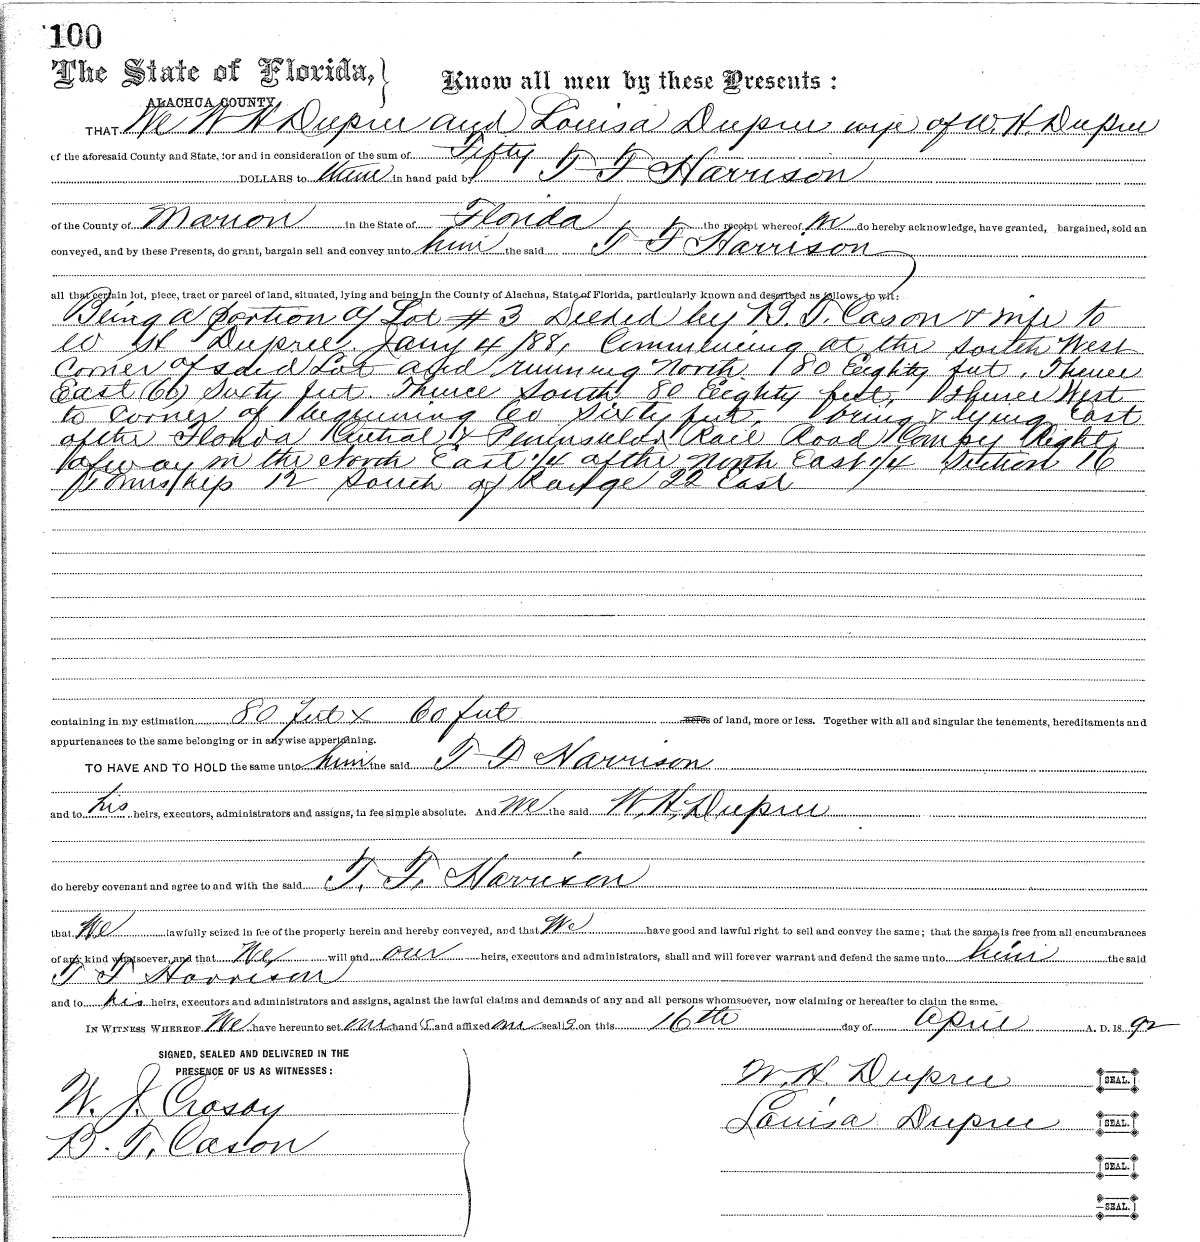 100
The State of Florida,} Know all men by these Presents:
ALACHUA COUNTY
THAT We W H Dupree and Louisa Dupree wife of W. H. Dupree
of the aforesaid County and State, for and in consideration of the sum of Fifty
DOLLARS to them in hand paid by T F Harrison
of the County of Marion in the State of Florida the receipt whereof we do hereby acknowledge, have granted, bargained, sold an
conveyed, and by these Presents, do grant, bargain sell and convey unto him the said T F Harrison
all that certain lot, piece, tract or parcel of land, situated, lying and being in the County of Alachua, State of Florida, particularly known and described as follows, to wit:
Being a portion of Lot # 3 Deeded by B. T. Cason & wife to
W H Dupree Jany 4 /88, Commencing at the South West
corner of said Lot and running North 80 Eighty feet, Thence
East (60) Sixty feet. Thence South 80 Eighty feet, Thence West
to corner of beginning 60 Sixty feet, being & lying East
of the Florida Central & Peninsular Rail Road Compy Right
of way in the North East 1/4 of the North East 1/4 Section 16
Township 12 South of Range 22 East
containing in my estimation 80 feet x 60 feet acres of land, more or less. Together with all and singular the tenements, hereditaments and
appurtenances to the same belonging or in anywise appertaining.
TO HAVE AND TO HOLD the same unto him the said T F Harrison
and to his heirs, executors, administrators and assigns, in fee simple absolute. And we the said W. H. Dupree
do hereby covenant and agree to and with the said T. F. Harrison
that We lawfully seized in fee of the property herein and hereby conveyed, and that We have good and lawful right to sell and convey the same; that the same is free from all encumbrances
of any kind whatsoever, and that We will and our heirs, executors and administrators, shall and will forever warrant and defend the same unto him the said
T F Harrison
and to his heirs, executors and administrators and assigns, against the lawful claims and demands of any and all persons whomsoever, now claiming or hereafter to claim the same.
IN WITNESS WHEREOF, We have hereunto set our hand s and affixed our seal s on this 16th day of April A. D. 18 92
SIGNED, SEALED AND DELIVERED IN THE
PRESENCE OF US AS WITNESSES:
W. J. Crosby
B. T. Cason
W. H. Dupree SEAL.
Louisa Dupree SEAL.
SEAL.
SEAL.